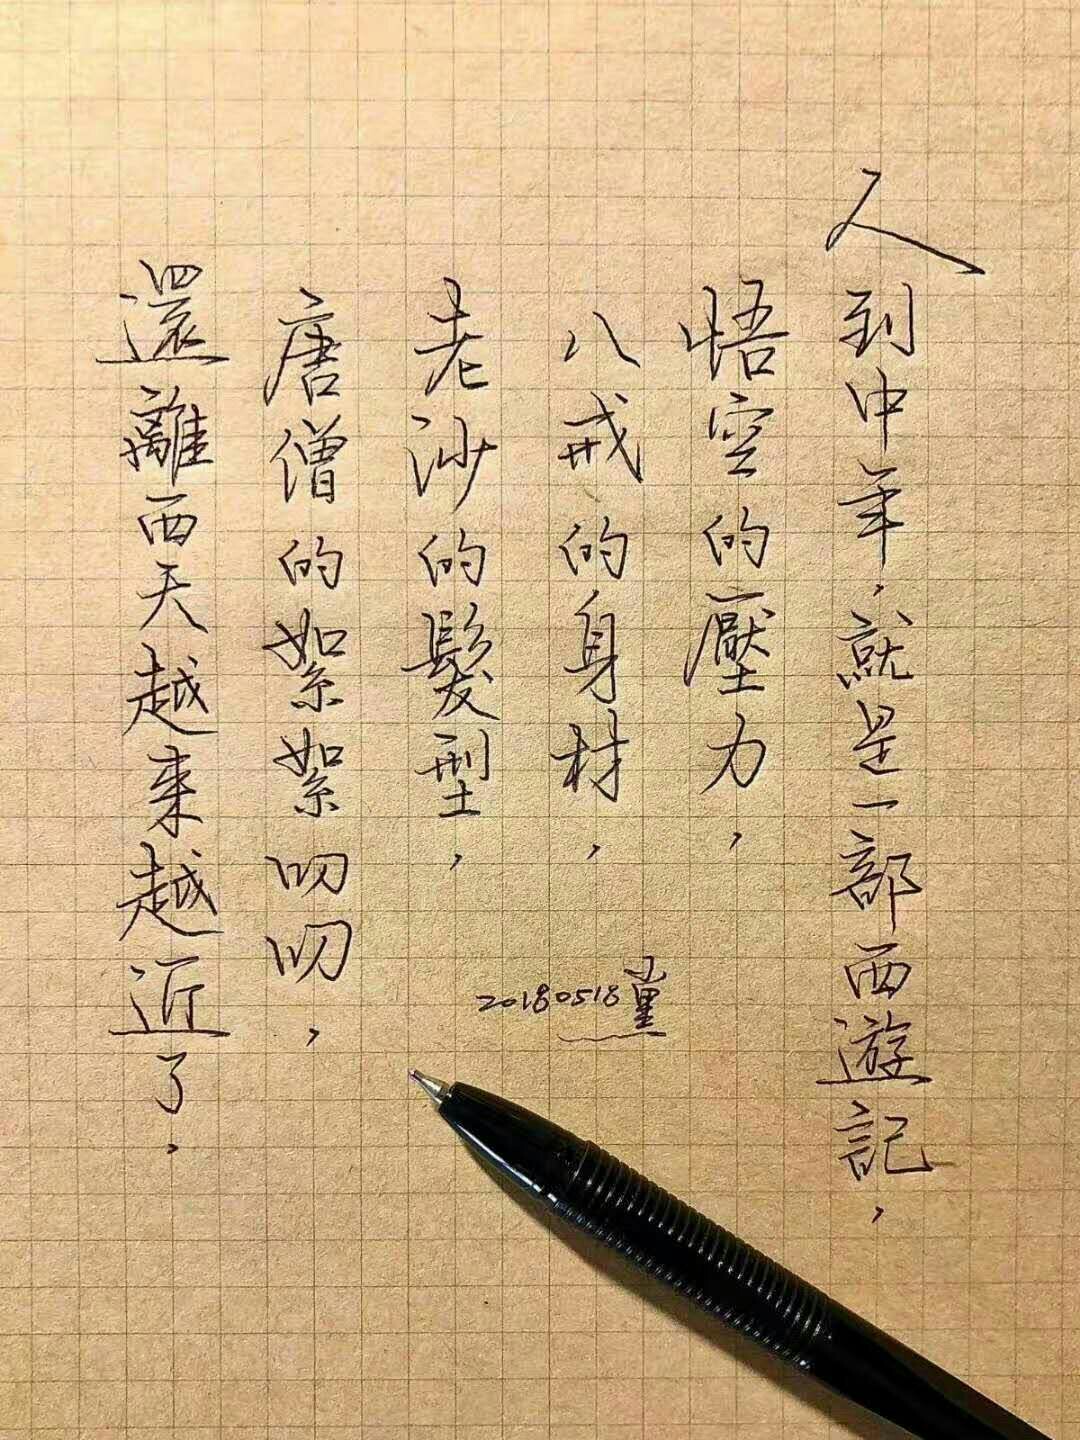 人到中年，就是一部西遊記，
悟空的壓力，
八戒的身材，
老沙的髮型，
唐僧的絮絮叨叨，
還離西天越来越近了．
20180518